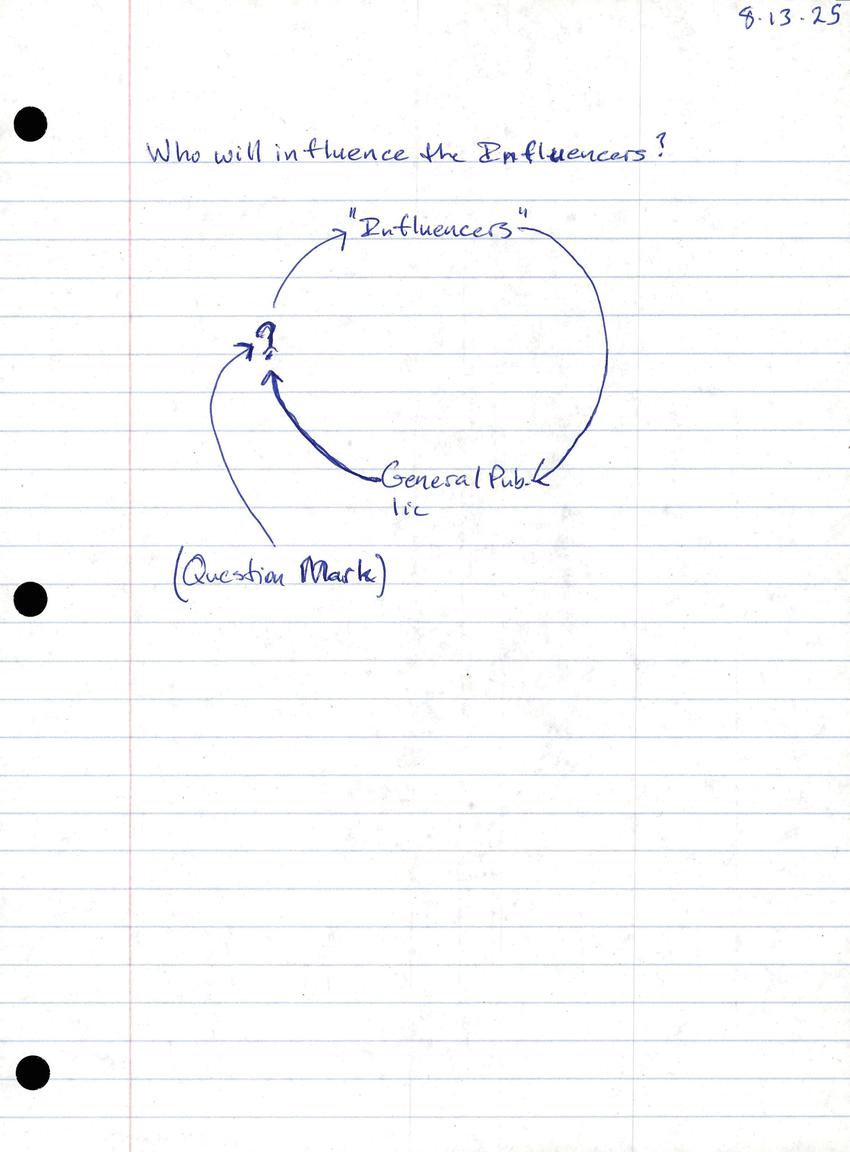 8.13.25
Who will influence the Influencers?
"Influencers"
?
General Pub-
lic
(Question Mark)